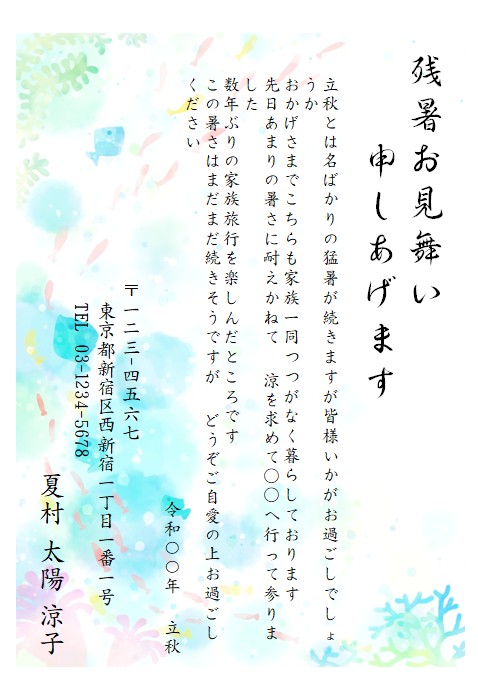 残暑お見舞い
申しあげます
立秋とは名ばかりの猛暑が続きますが皆様いかがお過ごしでしょ
うか
おかげさまでこちらも家族一同つつがなく暮らしております
先日あまりの暑さに耐えかねて　涼を求めて〇〇へ行って参りま
した
数年ぶりの家族旅行を楽しんだところです
この暑さはまだまだ続きそうですが　どうぞご自愛の上お過ごし
ください
令和〇〇年　立秋
〒一二三-四五六七
東京都新宿区西新宿一丁目一番一号
TEL 03-1234-5678
夏村 太陽 涼子